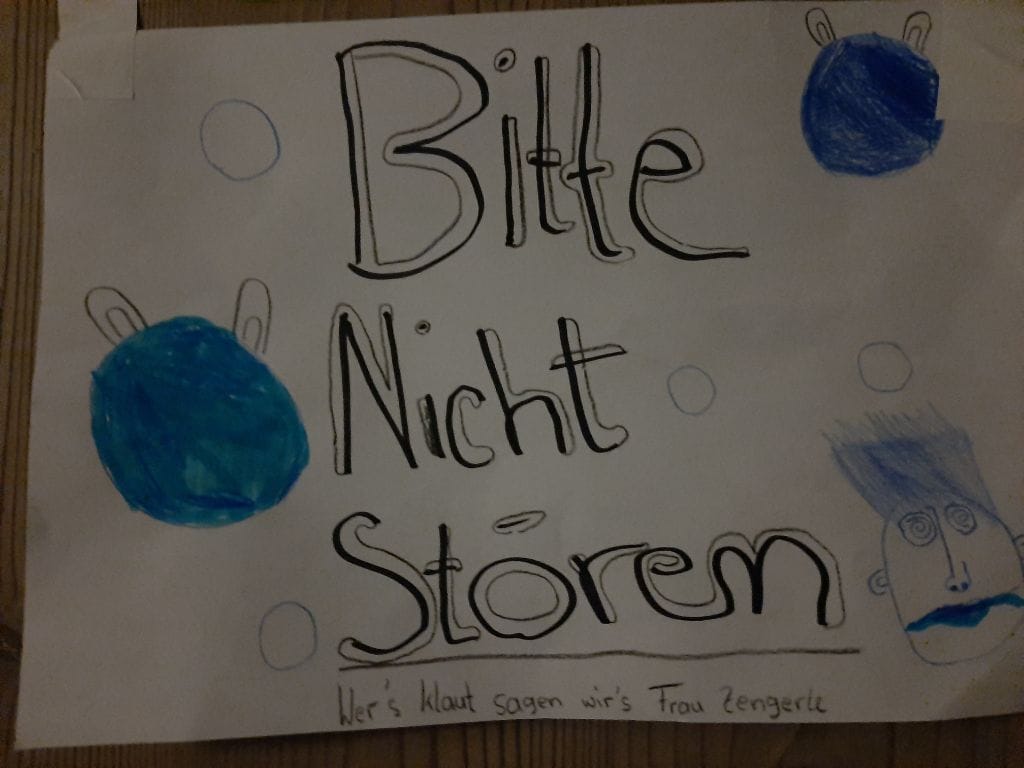 Bitte
Nicht
Stören
Wer's klaut sagen wir's Frau Zengerle